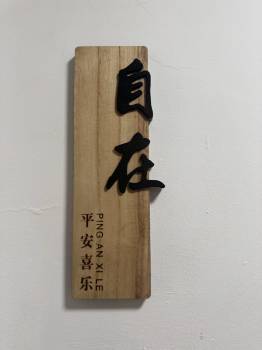 自在
平安喜乐
PING AN XI LE